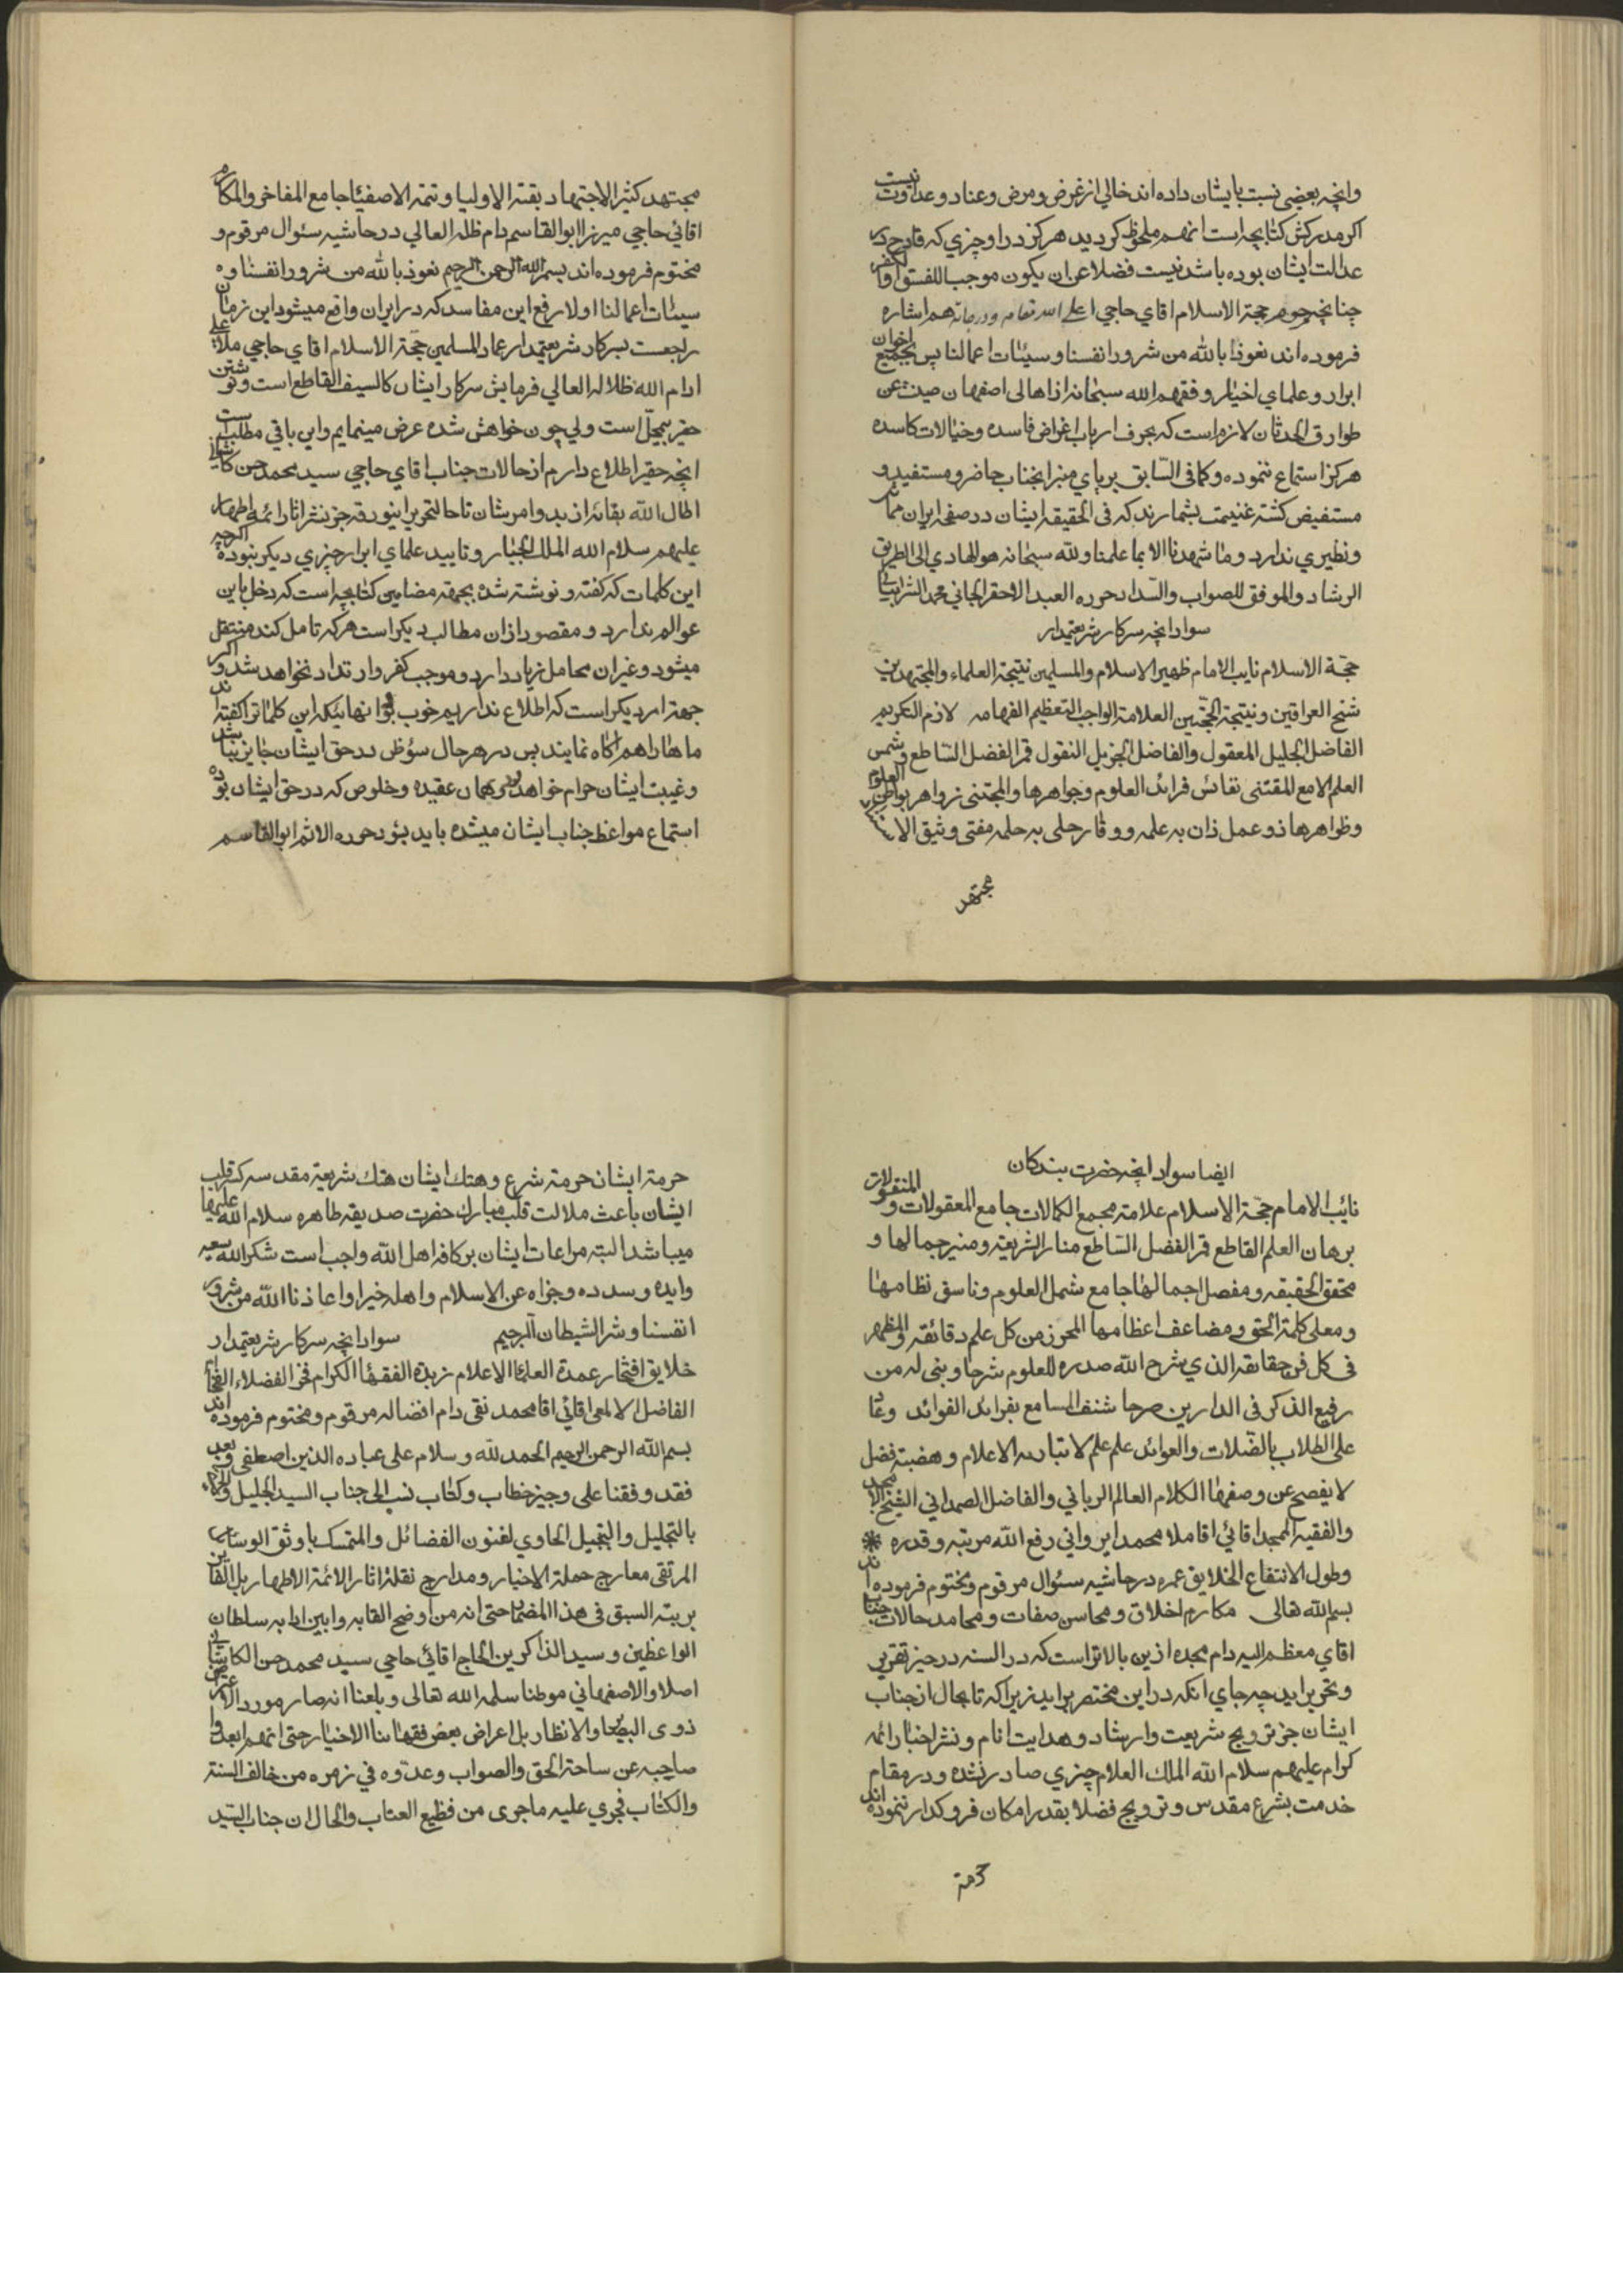 وانچه بعضی نسبت بایشان داده اند خالی از غرض و مرض و عناد و عداوت نیست
اکر مدرکش کتابچه است انهم ملحوظ کردید هرکز در او چیزي که قادح در
عدالت ایشان بوده باشد نیست فضلا عن ان یکون موجب اللفسق او الکفر
چنانچه مرحوم حجة الاسلام اقاي حاجي اعلی الله مقامه ودرجاته هم اشاره
فرموده اند نعوذ بالله من شرور انفسنا وسیئات اعمالنا پس بجمیع اخوان
ابرار و علماي اخیار وفقهم الله سبحانه از اهالی اصفهان صینت عن
طوارق الحدثان لازم است که بحرف ارباب اغراض فاسده و خیالات کاسده
هرکز استماع ننموده و کما فی السابق برپاي منبر انجناب حاضر و مستفید و
مستفیض کشته غنیمت بشمارند که فی الحقیقه ایشان در صفحه ایران مماثل
ونظیري ندارد وما شهدنا الا بما علمنا ولله سبحانه هو الهادي الی الطریق
الرشاد والموفق للصواب والسداد حرره العبد الاحقر الجاني محمد الشرابیاني
سواد انچه سرکار شریعتمدار
حجة الاسلام نایب الامام ظهیر الاسلام والمسلمین نتیجة العلماء والمجتهدین
شیخ العراقین ونتیجة الحجتین العلامة الواجب التعظیم الفهامه لازم التکریم
الفاضل الجلیل المعقول والفاضل الجزیل المنقول قمر الفضل الساطع وشمس
العلم الامع المقتنی نفائس فرائد العلوم وجواهرها والمجتنی زواهر بواطن العلوم
وظواهرها ذو عمل ذان به علمه ووقار حلی به حلمه مفتی وثیق الا
مجتهد
مجتهد کثیر الاجتهاد بقیة الاولیا وتتمة الاصفیئا جامع المفاخر والمکارم
اقائي حاجي میرزا ابوالقاسم دام ظله العالي در حاشیه سئوال مرقوم و
مختوم فرموده اند بسم الله الرحمن الرحیم نعوذ بالله من شرور انفسنا و
سیئات اعمالنا اولا رفع این مفاسد که در ایران واقع میشود این زمان
راجعست بسرکار شریعتمدار عماد المسلمین حجة الاسلام اقاي حاجي ملا علی
ادام الله ظلاله العالي فرمایش سرکار ایشان کالسیف القاطع است ونوشتن
حقیر سجل است ولي چون خواهش شده عرض مینمایم واین باقي مطلب است
انچه حقیر اطلاع دارم از حالات جناب اقاي حاجي سید محمد حسن کاشانی
اطال الله بقائه از بدو امرشان تا حال التحریر اینورقه جز نشر اثار ائمه اطهار
علیهم سلام الله الملک الجبار وتایید علماي ابرار چیزي دیکر نبوده اکرچه
این کلمات که کفته و نوشته شده بجهة مضامین کتابچه است که دخل باین
عوالم ندارد و مقصود ازان مطالب دیکر است هرکه تامل کند منتقل
میشود وغیر ان محامل زیاد دارد وموجب کفر وارتداد نخواهد شد و اکر
جهة امر دیکر است که اطلاع نداریم خوب بود انهائیکه این کلماترا کفته اند
ماها را هم اکاه نمایند پس در هر حال سؤظن در حق ایشان جایز نباشد
وغیبت ایشان حرام خواهد بود همان عقیده وخلوص که در حق ایشان بوده
استماع مواعظ جناب ایشان میشده باید بشود حرره الاثم ابوالقاسم
ایضا سواد انچه حضرت بندکان
نائب الامام حجة الاسلام علامة مجمع الکمالات جامع المعقولات والمنقولات
برهان العلم القاطع قمر الفضل الساطع منار الشریعة ومنیر جمالها و
محقق الحقیقه ومفصل اجمالها جامع شمل العلوم وناسق نظامها
ومعلی کلمة الحق ومضاعف اعظامها المحرز من کل علم دقائقه والمظهر
فی کل فن حقائقه الذي شرح الله صدره للعلوم شرحا وبنی له من
رفیع الذکر فی الدارین صرحا شنف المسامع بفرائد الفوائد وعاد
علی الطلاب بالصلات والعوائد علم علم لا تباریه الاعلام وهضبة فضل
لا یفصح عن وصفها الکلام العالم الرباني والفاضل الصمداني الشیخ الامجد
والفقیه الممجد اقائي اقا ملا محمد ایرواني رفع الله مرتبه وقدره *
وطول الانتفاع الخلایق عمره در حاشیه سئوال مرقوم ومختوم فرموده اند
بسم الله تعالی مکارم اخلاق ومحاسن صفات ومحامد حالات جناب
اقاي معظم الیه دام مجده ازین بالاتر است که در السنه در حیز تقریر
وتحریر اید چه جاي انکه در این مختصر براید زیرا که تا بحال از جناب
ایشان جز ترویج شریعت وارشاد وهدایت انام ونشر اخبار ائمه
کرام علیهم سلام الله الملک العلام چیزي صادر نشده ودر مقام
خدمت بشرع مقدس وترویج فضلا بقدر امکان فروکذار ننموده اند
حرمة
حرمة ایشان حرمة شرع وهتک ایشان هتک شریعة مقدسه کسر قلب
ایشان باعث ملالت قلب مبارک حضرت صدیقه طاهره سلام الله علیها
میباشد البته مراعات ایشان بر کافه اهل الله واجب است شکر الله سعیه
وایده وسدده وجزاه عن الاسلام واهله خیرا واعاذنا الله من شرور
انفسنا وشر الشیطان الرجیم سواد انچه سرکار شریعتمدار
خلایق افتخار عمدة العلماء الاعلام زبدة الفقهاء الکرام فخر الفضلاء الفخام
الفاضل الالمعی اقائي اقا محمد نقی دام افضاله مرقوم ومختوم فرموده اند
بسم الله الرحمن الرحیم الحمد لله وسلام علی عباده الذین اصطفی وبعد
فقد وقفنا علی وجیز خطاب وکتاب نسب الی جناب السید الجلیل
بالتجلیل والتبجیل الحاوي لفنون الفضائل والمتمسک باوثق الوسائل
المرتقی معارج حملة الاخیار ومدارج نقلة اثار الائمة الاطهار بل الفائز
برتبة السبق فی هذا المضمار حتی انه من اوضح القابه وابین ادابه سلطان
الواعظین وسید الذاکرین الحاج اقائي حاجي سید محمد حسن الکاشاني
اصلا والاصفهاني موطنا سلمه الله تعالی وبلعنا انه صار مورد الا
ذوی البصار والانظار بل اعراض بعض فقهائنا الاخیار حتی انهم ابعدوا
صاحبه عن ساحة الحق والصواب وعدوه في زمره من خالف السنة
والکتاب فجری علیه ما جری من فظیع العتاب والحال ان جناب السید